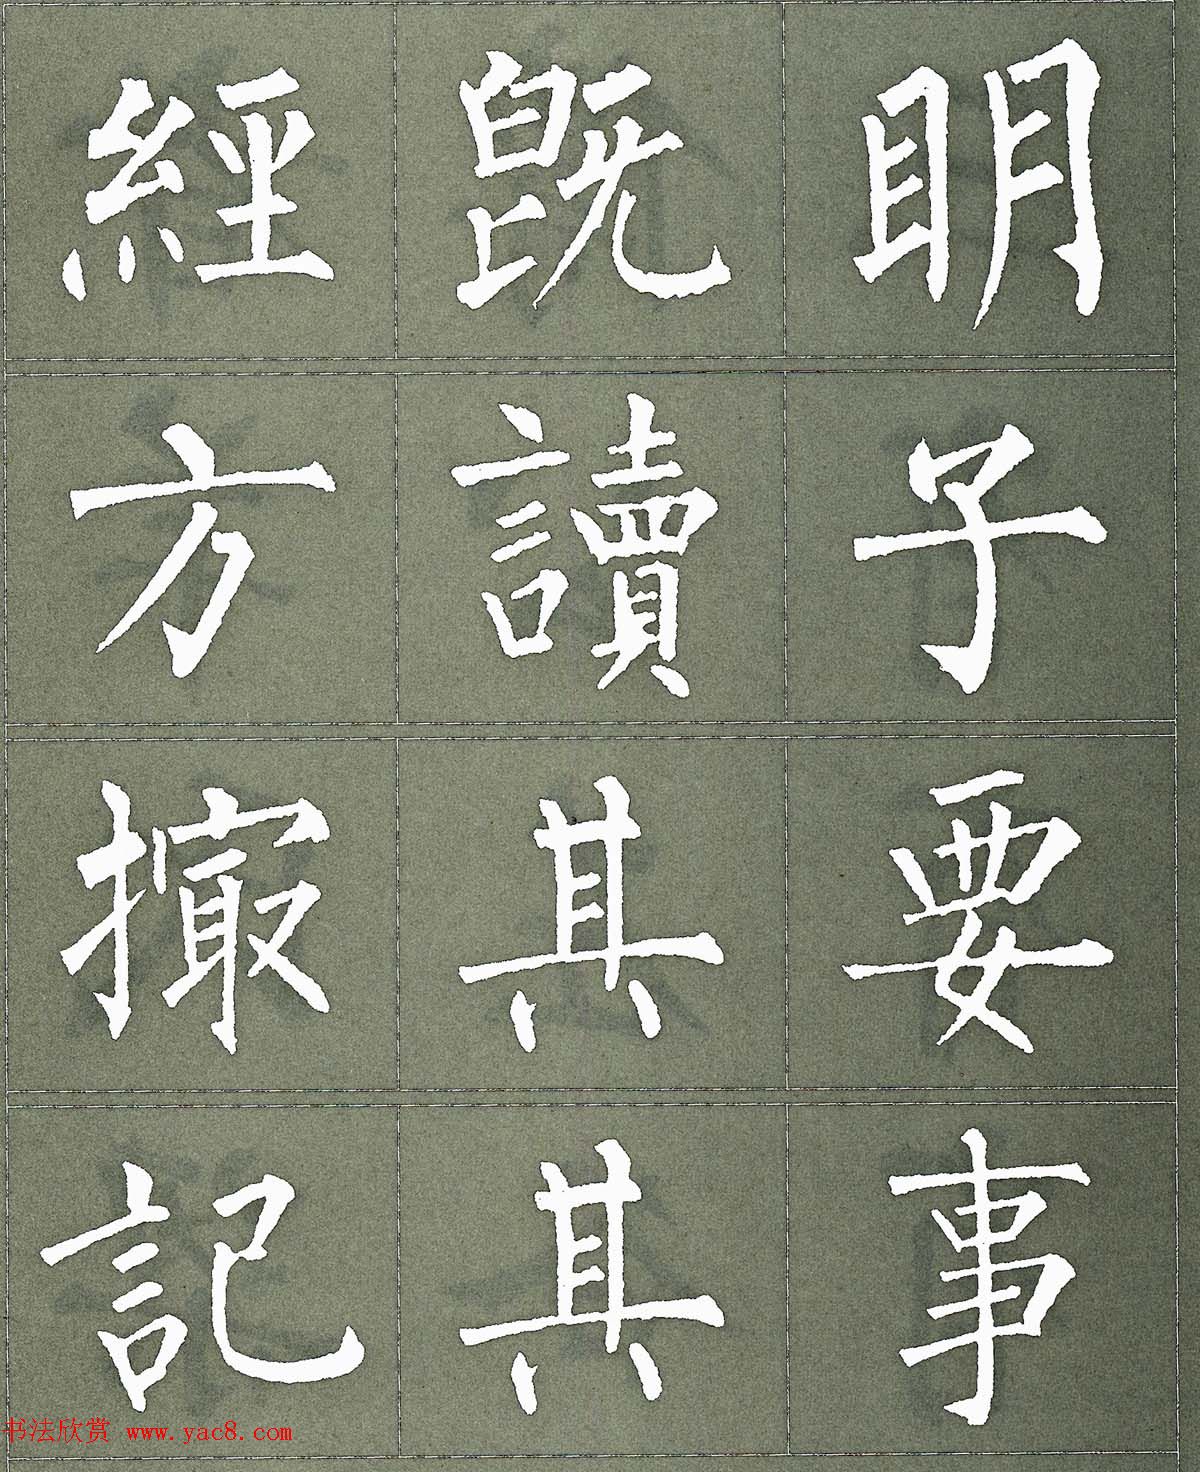 經既明
方讀子
撮其要
記其事
书法欣赏 www.yac8.com